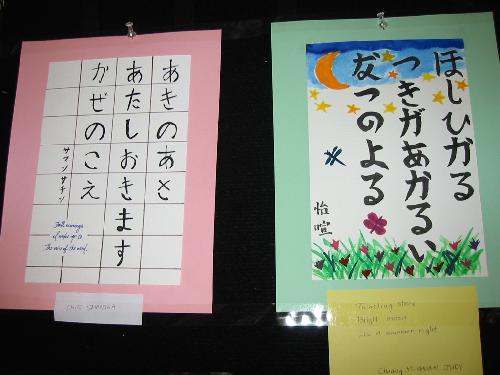 あきのあさ
あたしおきます
かぜのこえ
サマンサチン
Fall mornings
I wake up to
The voice of the wind.
ほしひかる
つきがあかるい
なつのよる
怡暄
Twinkling stars
Bright moon
a summer night
JUDY